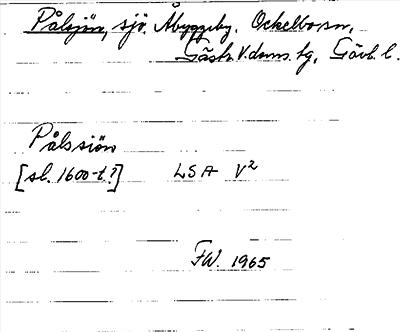 Pålsjön, sjö. Åbyggeby. Ockelbo sn,
Gästr. V. doms. tg, Gävl. l.
Pålssiön
[sl. 1600-t.?] LSA V²
FW. 1965